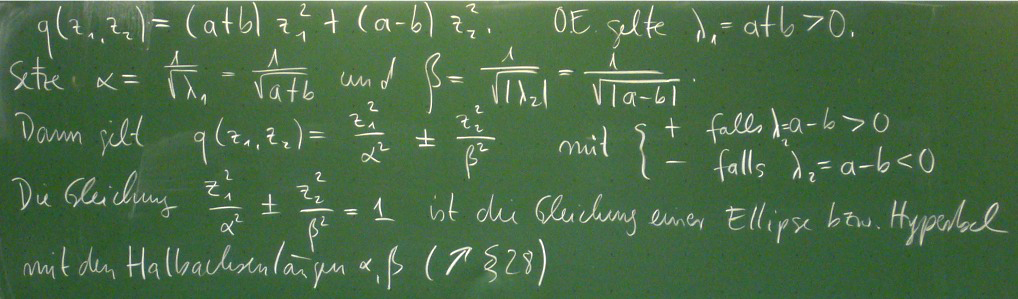 q(z₁,z₂) = (a+b) z₁² + (a-b) z₂². O.E. gelte λ₁ = a+b > 0.
Setze α = 1/√λ₁ = 1/√(a+b) und β = 1/√|λ₂| = 1/√|a-b|.
Dann gilt q(z₁,z₂) = z₁²/α² ± z₂²/β² mit { + falls λ₂ = a-b > 0
− falls λ₂ = a-b < 0
Die Gleichung z₁²/α² ± z₂²/β² = 1 ist die Gleichung einer Ellipse bzw. Hyperbel
mit den Halbachsenlängen α, β (↗ §28)